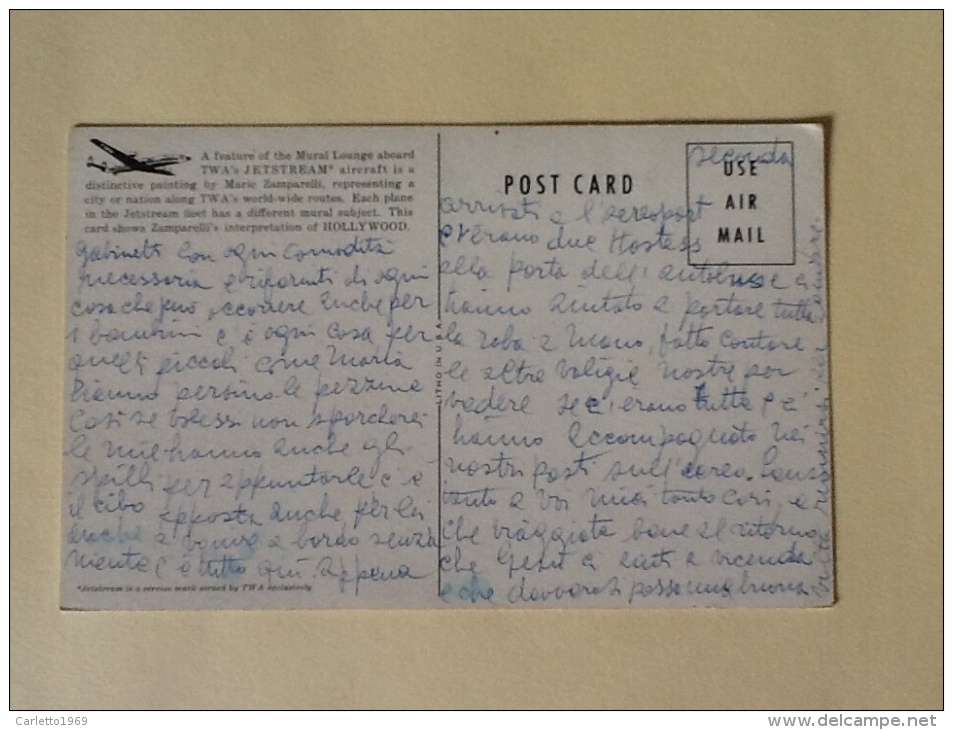 A feature of the Mural Lounge aboard
TWA's JETSTREAM* aircraft is a
distinctive painting by Mario Zamparelli, representing a
city or nation along TWA's world-wide routes. Each plane
in the Jetstream fleet has a different mural subject. This
card shows Zamparelli's interpretation of HOLLYWOOD.
gabinetti con ogni comodità
necessaria e riforniti di ogni
cosa che può occorrere anche per
i bambini c'è ogni cosa, per
quelli piccoli come Maria
hanno persino le pezzine
così se volessi non sporcherei
le mie hanno anche gli
spilli per appuntarle c'è
il cibo apposta anche per lei
anche a bordo senza
niente c'è tutto qui. appena
*Jetstream is a service mark owned by TWA exclusively
LITHO IN U.S.A.
POST CARD
USE
AIR
MAIL
seconda
arrivati a l'aeroport
c'erano due Hostess
alla porta dell'autobus e ci
hanno aiutato a portare tutta
la roba a mano, fatto contare
le altre valigie nostre per
vedere se c'erano tutte e ci
hanno accompagnato nei
nostri posti sull'aereo.
tanto a voi miei tanto cari, e
che viaggiate bene al ritorno
che Gesù ci aiuti a vicenda
e che davvero ti possa una buona